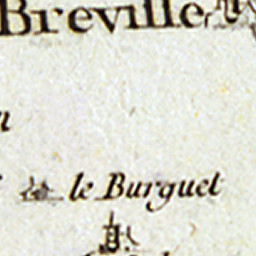 Breville
le Burguet